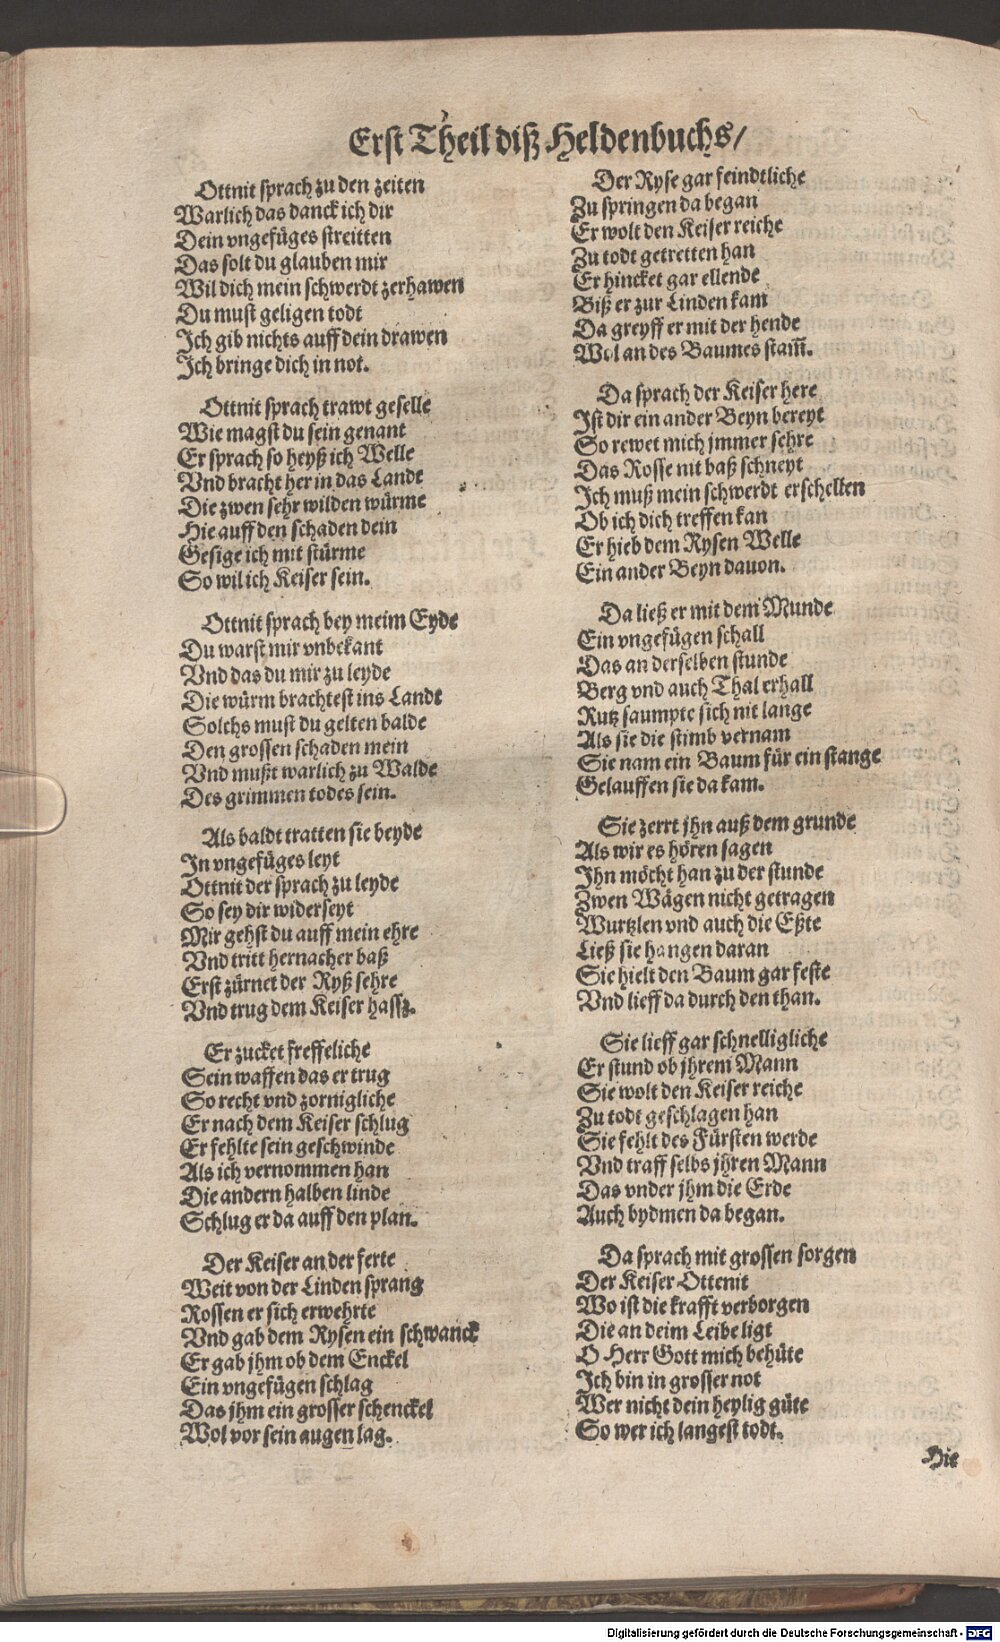 Erst Theil diß Heldenbuchs/
Ottnit sprach zu den zeiten
Warlich das danck ich dir
Dein vngefüges streitten
Das solt du glauben mir
Wil dich mein schwerdt zerhawen
Du must geligen todt
Ich gib nichts auff dein drawen
Ich bringe dich in not.
Ottnit sprach trawt geselle
Wie magst du sein genant
Er sprach so heyß ich Welle
Vnd bracht her in das Landt
Die zwen sehr wilden würme
Hie auff den schaden dein
Gesige ich mit stürme
So wil ich Keiser sein.
Ottnit sprach bey meim Eyde
Du warst mir vnbekant
Vnd das du mir zu leyde
Die würm brachtest ins Landt
Solchs must du gelten balde
Den grossen schaden mein
Vnd mußt warlich zu Walde
Des grimmen todes sein.
Als baldt tratten sie beyde
In vngefüges leyt
Ottnit der sprach zu leyde
So sey dir widerseyt
Mir gehst du auff mein ehre
Vnd tritt hernacher baß
Erst zürnet der Ryß sehre
Vnd trug dem Keiser hassz.
Er zucket freffeliche
Sein waffen das er trug
So recht vnd zornigliche
Er nach dem Keiser schlug
Er fehlte sein geschwinde
Als ich vernommen han
Die andern halben linde
Schlug er da auff den plan.
Der Keiser an der ferte
Weit von der Linden sprang
Rossen er sich erwehrte
Vnd gab dem Rysen ein schwanck
Er gab jhm ob dem Enckel
Ein vngefügen schlag
Das jhm ein grosser schenckel
Wol vor sein augen lag.
Der Ryse gar feindtliche
Zu springen da began
Er wolt den Keiser reiche
Zu todt getretten han
Er hincket gar ellende
Biß er zur Linden kam
Da greyff er mit der hende
Wol an des Baumes stam̃.
Da sprach der Keiser here
Ist dir ein ander Beyn bereyt
So rewet mich jmmer sehre
Das Rosse nit baß schneyt
Ich muß mein schwerdt erschellen
Ob ich dich treffen kan
Er hieb dem Rysen Welle
Ein ander Beyn dauon.
Da ließ er mit dem Munde
Ein vngefügen schall
Das an derselben stunde
Berg vnd auch Thal erhall
Rutz saumpte sich nit lange
Als sie die stimb vernam
Sie nam ein Baum für ein stange
Gelauffen sie da kam.
Sie zerrt jhn auß dem grunde
Als wir es hören sagen
Ihn möcht han zu der stunde
Zwen Wägen nicht getragen
Wurtzlen vnd auch die Eßte
Ließ sie hangen daran
Sie hielt den Baum gar feste
Vnd lieff da durch den than.
Sie lieff gar schnelligliche
Er stund ob jhrem Mann
Sie wolt den Keiser reiche
Zu todt geschlagen han
Sie fehlt des Fürsten werde
Vnd traff selbs jhren Mann
Das vnder jhm die Erde
Auch bydmen da began.
Da sprach mit grossen sorgen
Der Keiser Ottenit
Wo ist die krafft verborgen
Die an deim Leibe ligt
O Herr Gott mich behüte
Ich bin in grosser not
Wer nicht dein heylig güte
So wer ich langest todt.
Hie
Digitalisierung gefördert durch die Deutsche Forschungsgemeinschaft - DFG